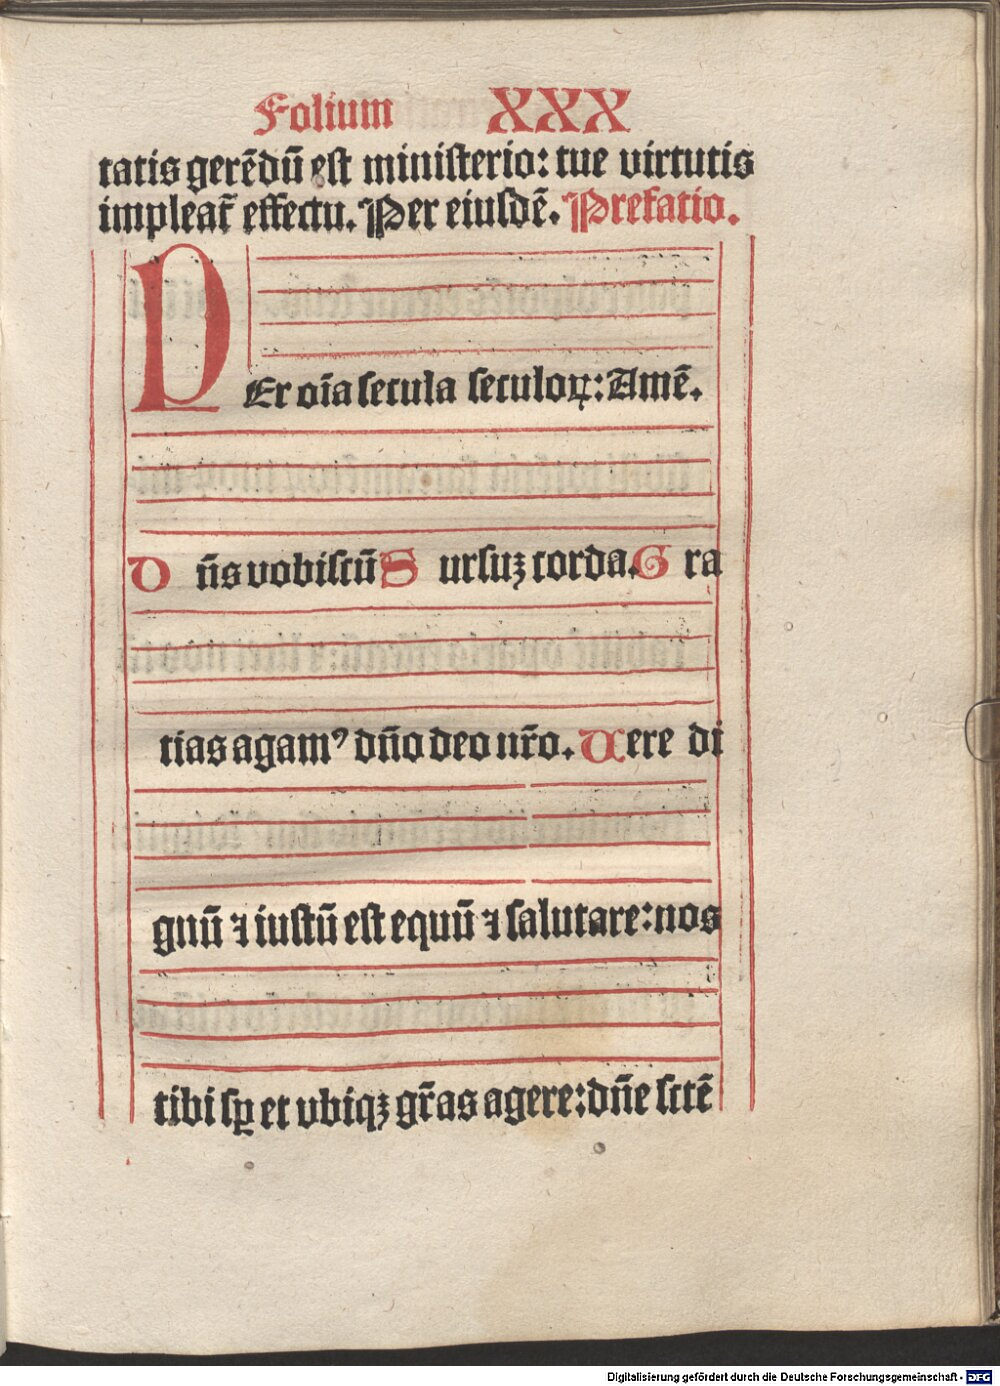 Folium XXX
tatis gerēdū est ministerio: tue virtutis
impleat̄ effectu. Per eiusdē. Prefatio.
PEr oīa secula seculoꝝ: Amē.
Dn̄s vobiscū Sursuꝫ corda. Gra
tias agamꝰ dn̄o deo nr̄o. Uere di
gnū ⁊ iustū est equū ⁊ salutare: nos
tibi sꝑ et vbiqꝫ gr̄as agere: dn̄e sctē
Digitalisierung gefördert durch die Deutsche Forschungsgemeinschaft - DFG